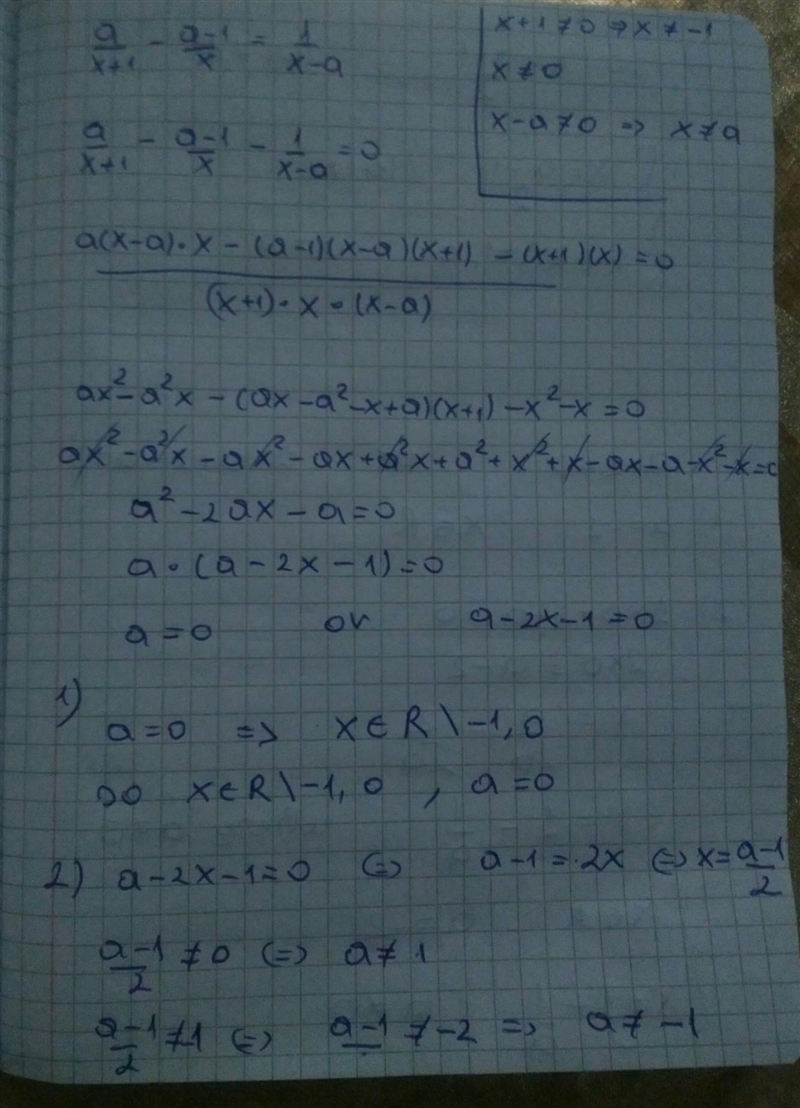 a/(x+1) - (a-1)/x = 1/(x-a)
x+1≠0 ⇒ x≠-1
x≠0
x-a≠0 ⇒ x≠a
a/(x+1) - (a-1)/x - 1/(x-a) = 0
(a(x-a)·x - (a-1)(x-a)(x+1) - (x+1)(x))/((x+1)·x·(x-a)) = 0
ax²-a²x-(ax-a²-x+a)(x+1)-x²-x=0
ax²-a²x-ax²-ax+a²x+a²+x²+x-ax-a-x²-x=0
a²-2ax-a=0
a·(a-2x-1)=0
a=0 or a-2x-1=0
1)
a=0 ⇒ x∈R\-1,0
so x∈R\-1,0 , a=0
2) a-2x-1=0 ⇔ a-1=2x ⇔ x=(a-1)/2
(a-1)/2 ≠0 ⇔ a≠1
(a-1)/2 ≠1 ⇔ a-1≠-2 ⇒ a≠-1